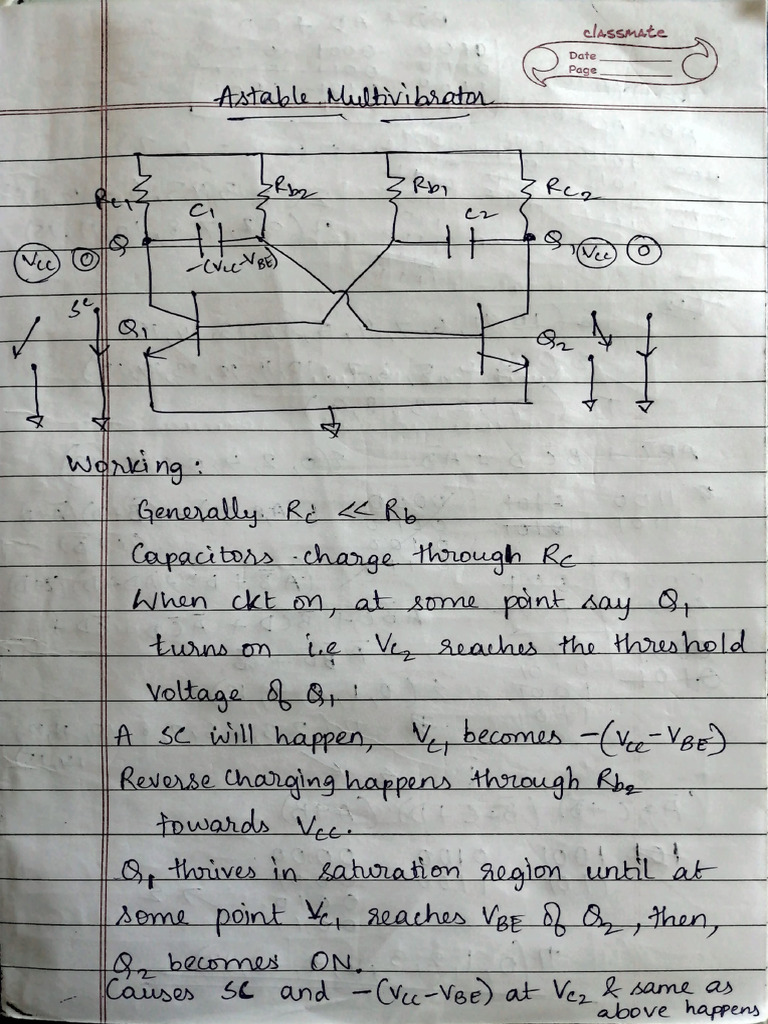 classmate
Date
Page
Astable Multivibrator
Rc1 Rb2 Rb1 Rc2
C1 C2
Vcc 0 Q Q1 Vcc 0
-(Vcc-VBE)
SC Q1 Q2
Working:
Generally Rc << Rb
Capacitors charge through Rc
When ckt on, at some point say Q1
turns on i.e. Vc2 reaches the threshold
voltage of Q1
A SC will happen, Vc1 becomes -(Vcc-VBE)
Reverse charging happens through Rb2
towards Vcc.
Q1 thrives in saturation region until at
some point Vc1 reaches VBE of Q2, then,
Q2 becomes ON.
Causes SC and -(Vcc-VBE) at Vc2 & same as
above happens